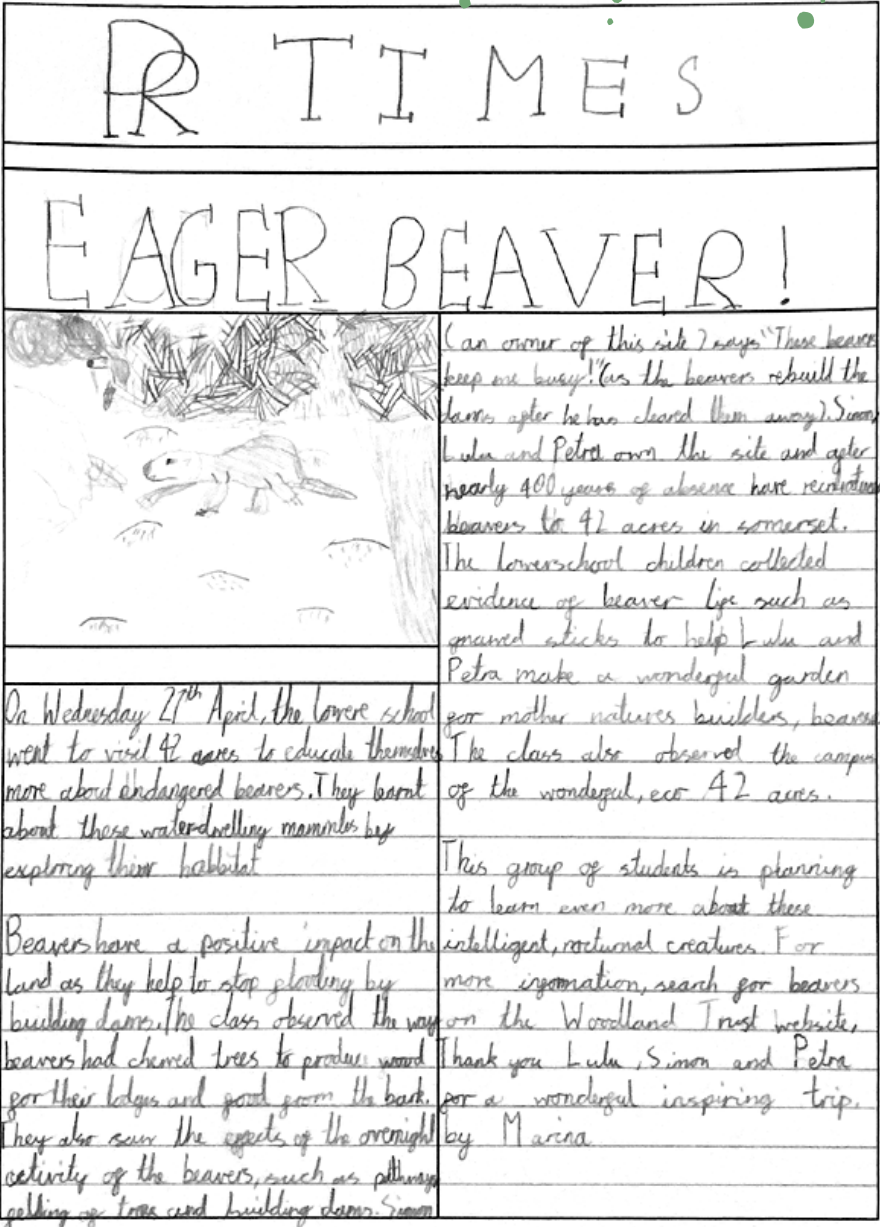 PR TIMES
EAGER BEAVER!
On Wednesday 27th April, the lowere school
went to visit 42 acres to educate themselves
more about endangered beavers. They learnt
about these waterdwelling mammles by
exploring their habbitat
Beavers have a positive impact on the
land as they help to stop flooding by
building dams. The class observed the way
beavers had chewed trees to produce wood
for their lodges and food from the bark.
They also saw the effects of the overnight
activity of the beavers, such as pathways
felling of trees and building dams. Simon
(an owner of this site) says "These beavers
keep me busy!" (as the beavers rebuild the
dams after he has cleared them away). Simon,
Lulu and Petra own the site and after
nearly 400 years of absence have
beavers to 42 acres in somerset.
The lowerschool children collected
evidence of beaver life such as
gnawed sticks to help Lulu and
Petra make a wonderful garden
for mother natures builders, beavers
The class also observed the campus
of the wonderful, eco 42 acres.
This group of students is planning
to learn even more about these
intelligent, nocturnal creatures. For
more information, search for beavers
on the Woodland Trust website,
Thank you Lulu, Simon and Petra
for a wonderful inspiring trip.
by Marina